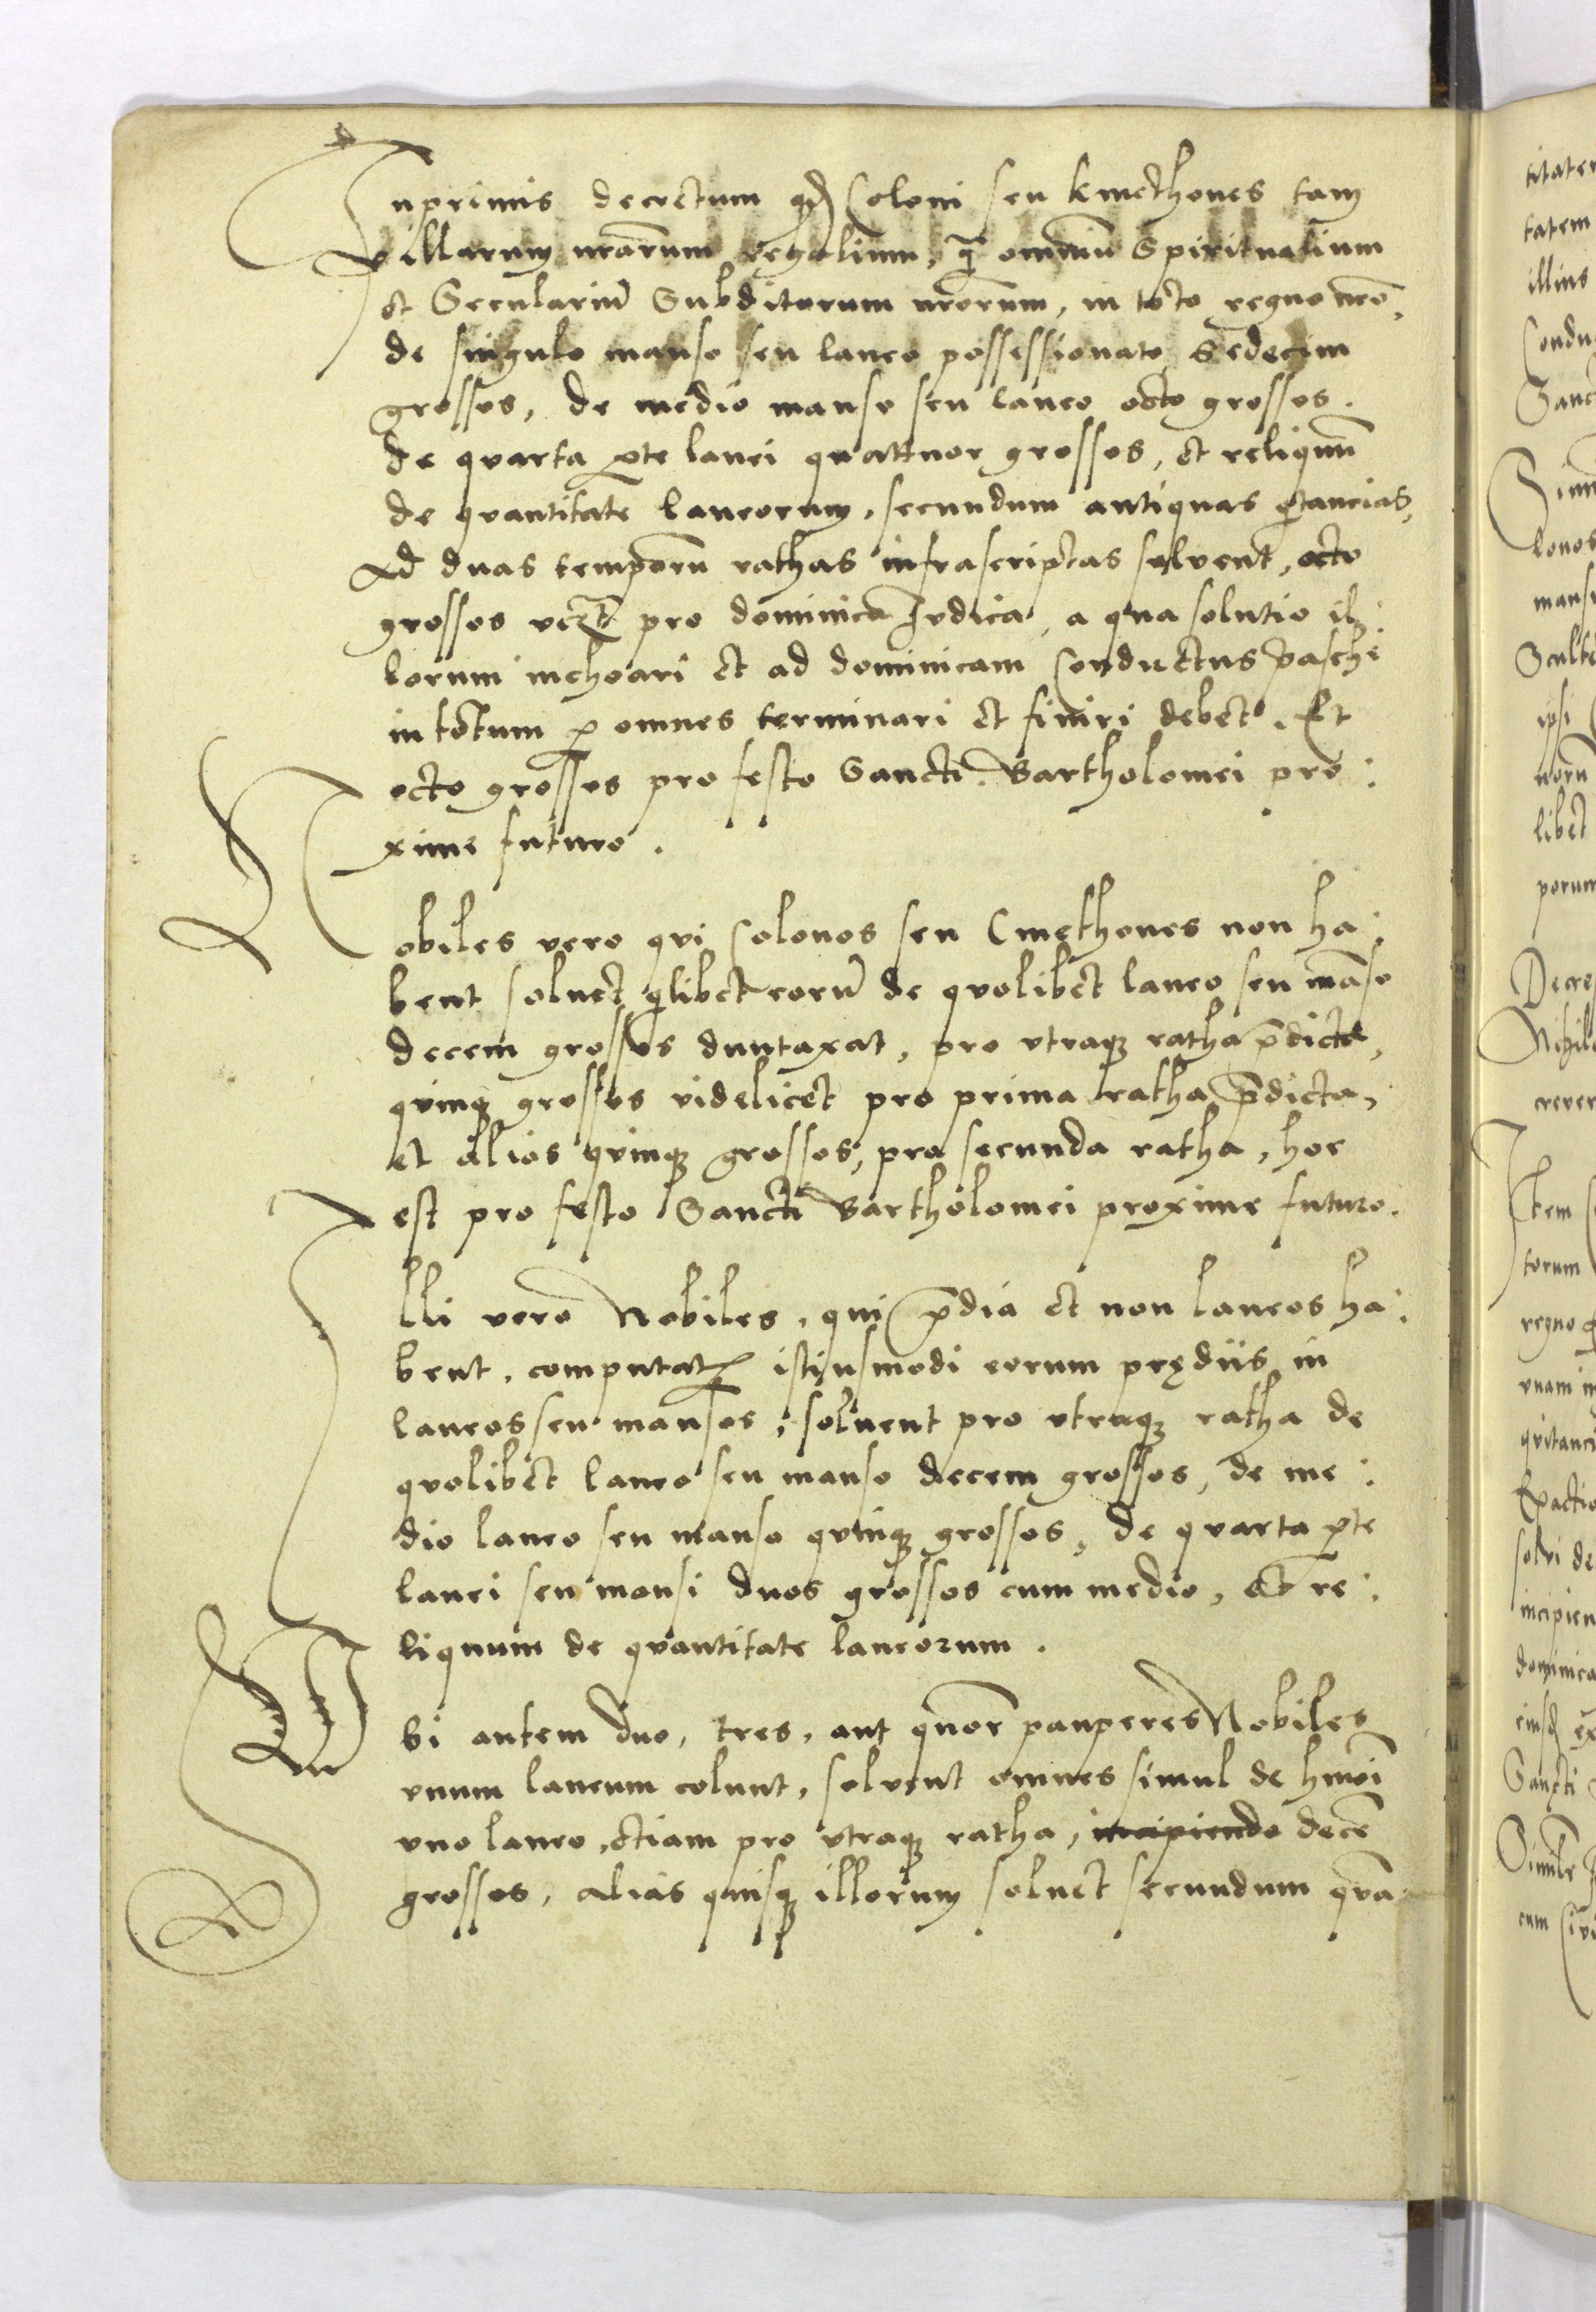 Inprimis decretum qd Coloni seu kmethones tam
villarum nrarum regalium, q̃ omniũ Spiritualium
et Seculariũ Subditorum nrorum, in toto regno nrõ,
de singulo manso seu laneo possessionato Sedecim
grossos, de medio manso seu laneo octo grossos.
de quarta pte lanei quattuor grossos, et reliquũ
de quantitate laneorum, secundum antiquas qtancias,
Ad duas temporũ rathas infrascriptas solvent, octo
grossos pro dominica Iudica, a qua solutio il:
lorum inchoari et ad dominicam Conductus Pasche
in totum p omnes terminari et finiri debet. Et
octo grossos pro festo Sancti Bartholomei pro:
xime futuro.
Nobiles vero qui Colonos seu Cmethones non ha:
bent soluet qlibet eorũ de quolibet laneo seu mãso
decem grossos duntaxat, pro utraq; ratha p̃dicta,
quinq; grossos videlicet pro prima ratha p̃dicta,
et alios quinq; grossos, pro secunda ratha, hoc
est pro festo Sancti Bartholomei proxime futuro.
Illi vero Nobiles, qui p̃dia et non laneos ha:
bent, computat istiusmodi eorum prędiis in
laneos seu mansos, soluent pro utraq; ratha de
quolibet laneo seu manso decem grossos, de me:
dio laneo seu manso quinq; grossos, de quarta pte
lanei seu mansi duos grossos cum medio, et re:
liquum de quantitate laneorum.
Vbi autem duo, tres, aut quor̃ pauperes Nobiles
vnum laneum colunt, solvent omnes simul de hmõi
vno laneo, etiam pro vtraq; ratha, incipiendo decẽ
grossos, alias quisq; illorum soluet secundum quã
titatem
tatem
illius
Condu
Sanc
lonos
mansi
Sculte
ipsi
libet
porum
Decre
Nihil
crever
Item
torum
regno
vnam
quitanci
Exactio
solvi de
incipien
dominica
Sancti
Simil
cum Civi